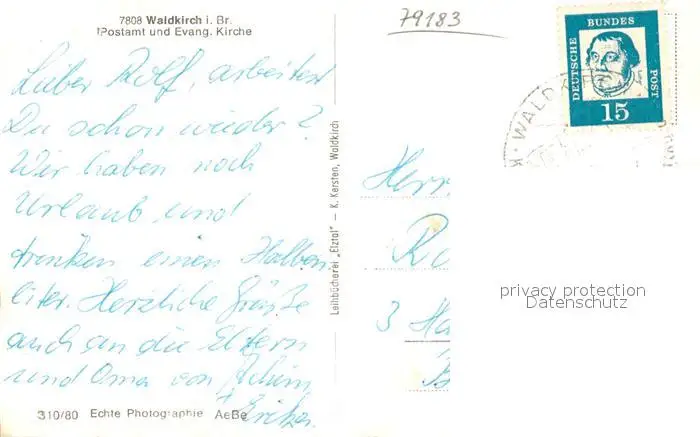 7808 Waldkirch i. Br.
Postamt und Evang. Kirche
79183
DEUTSCHE BUNDES POST
15
WALDK
Lieber Rolf, arbeitest
Du schon wieder?
Wir haben noch
Urlaub und
trinken einen Halben
liter. Herzliche Grüße
auch an die Eltern
und Oma von Achim
+
Leihbücherei „Elztal" – K. Kersten, Waldkirch
Herr
Ro
3 Ha
B
privacy protection
Datenschutz
310/80 Echte Photographie AeBe